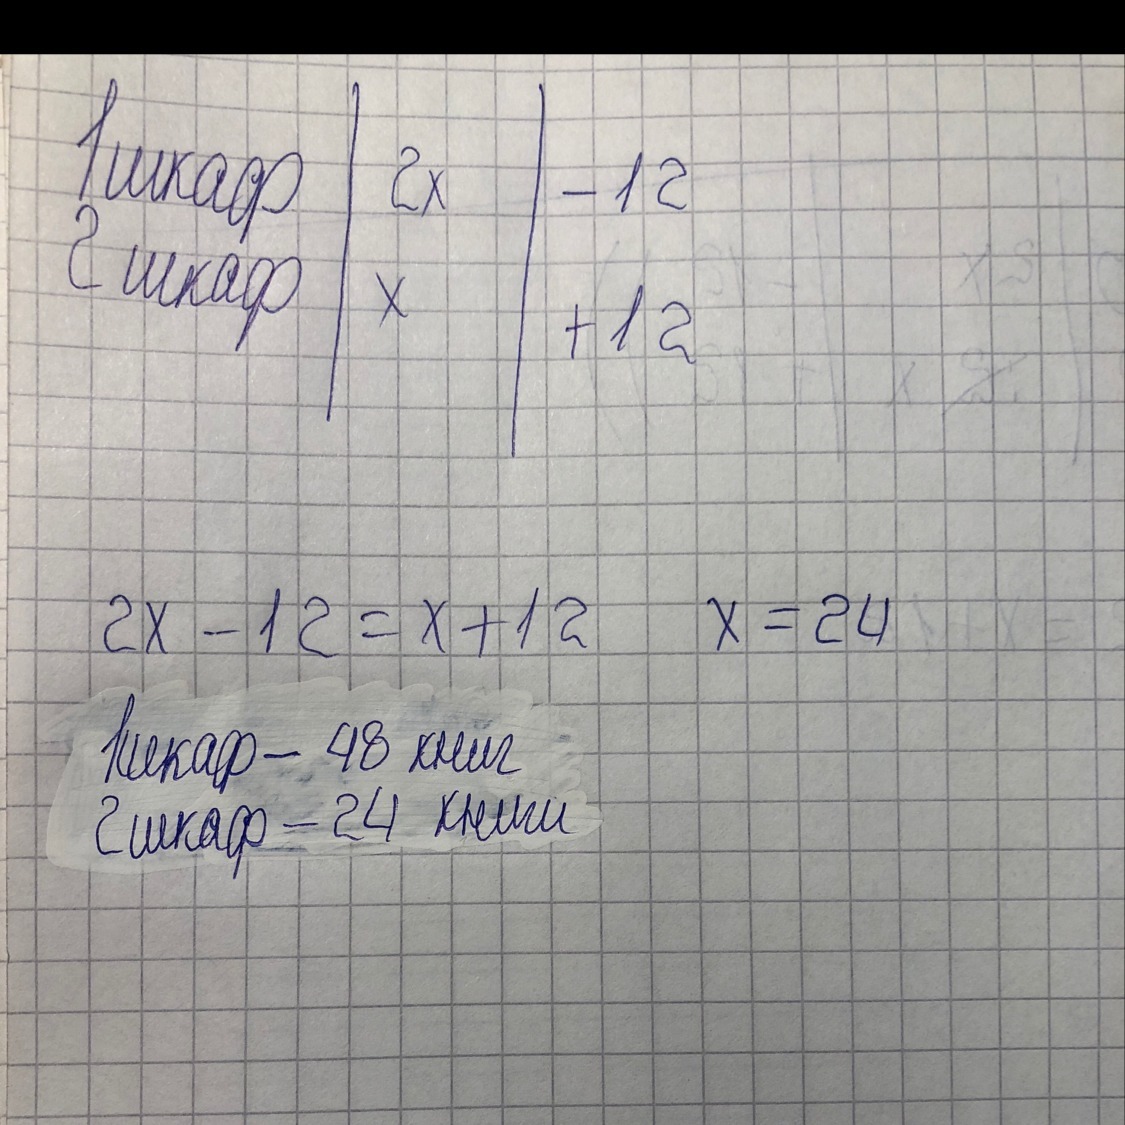 1 шкаф | 2x | -12
2 шкаф | x | +12
2x - 12 = x + 12 x = 24
1 шкаф - 48 книг
2 шкаф - 24 книги